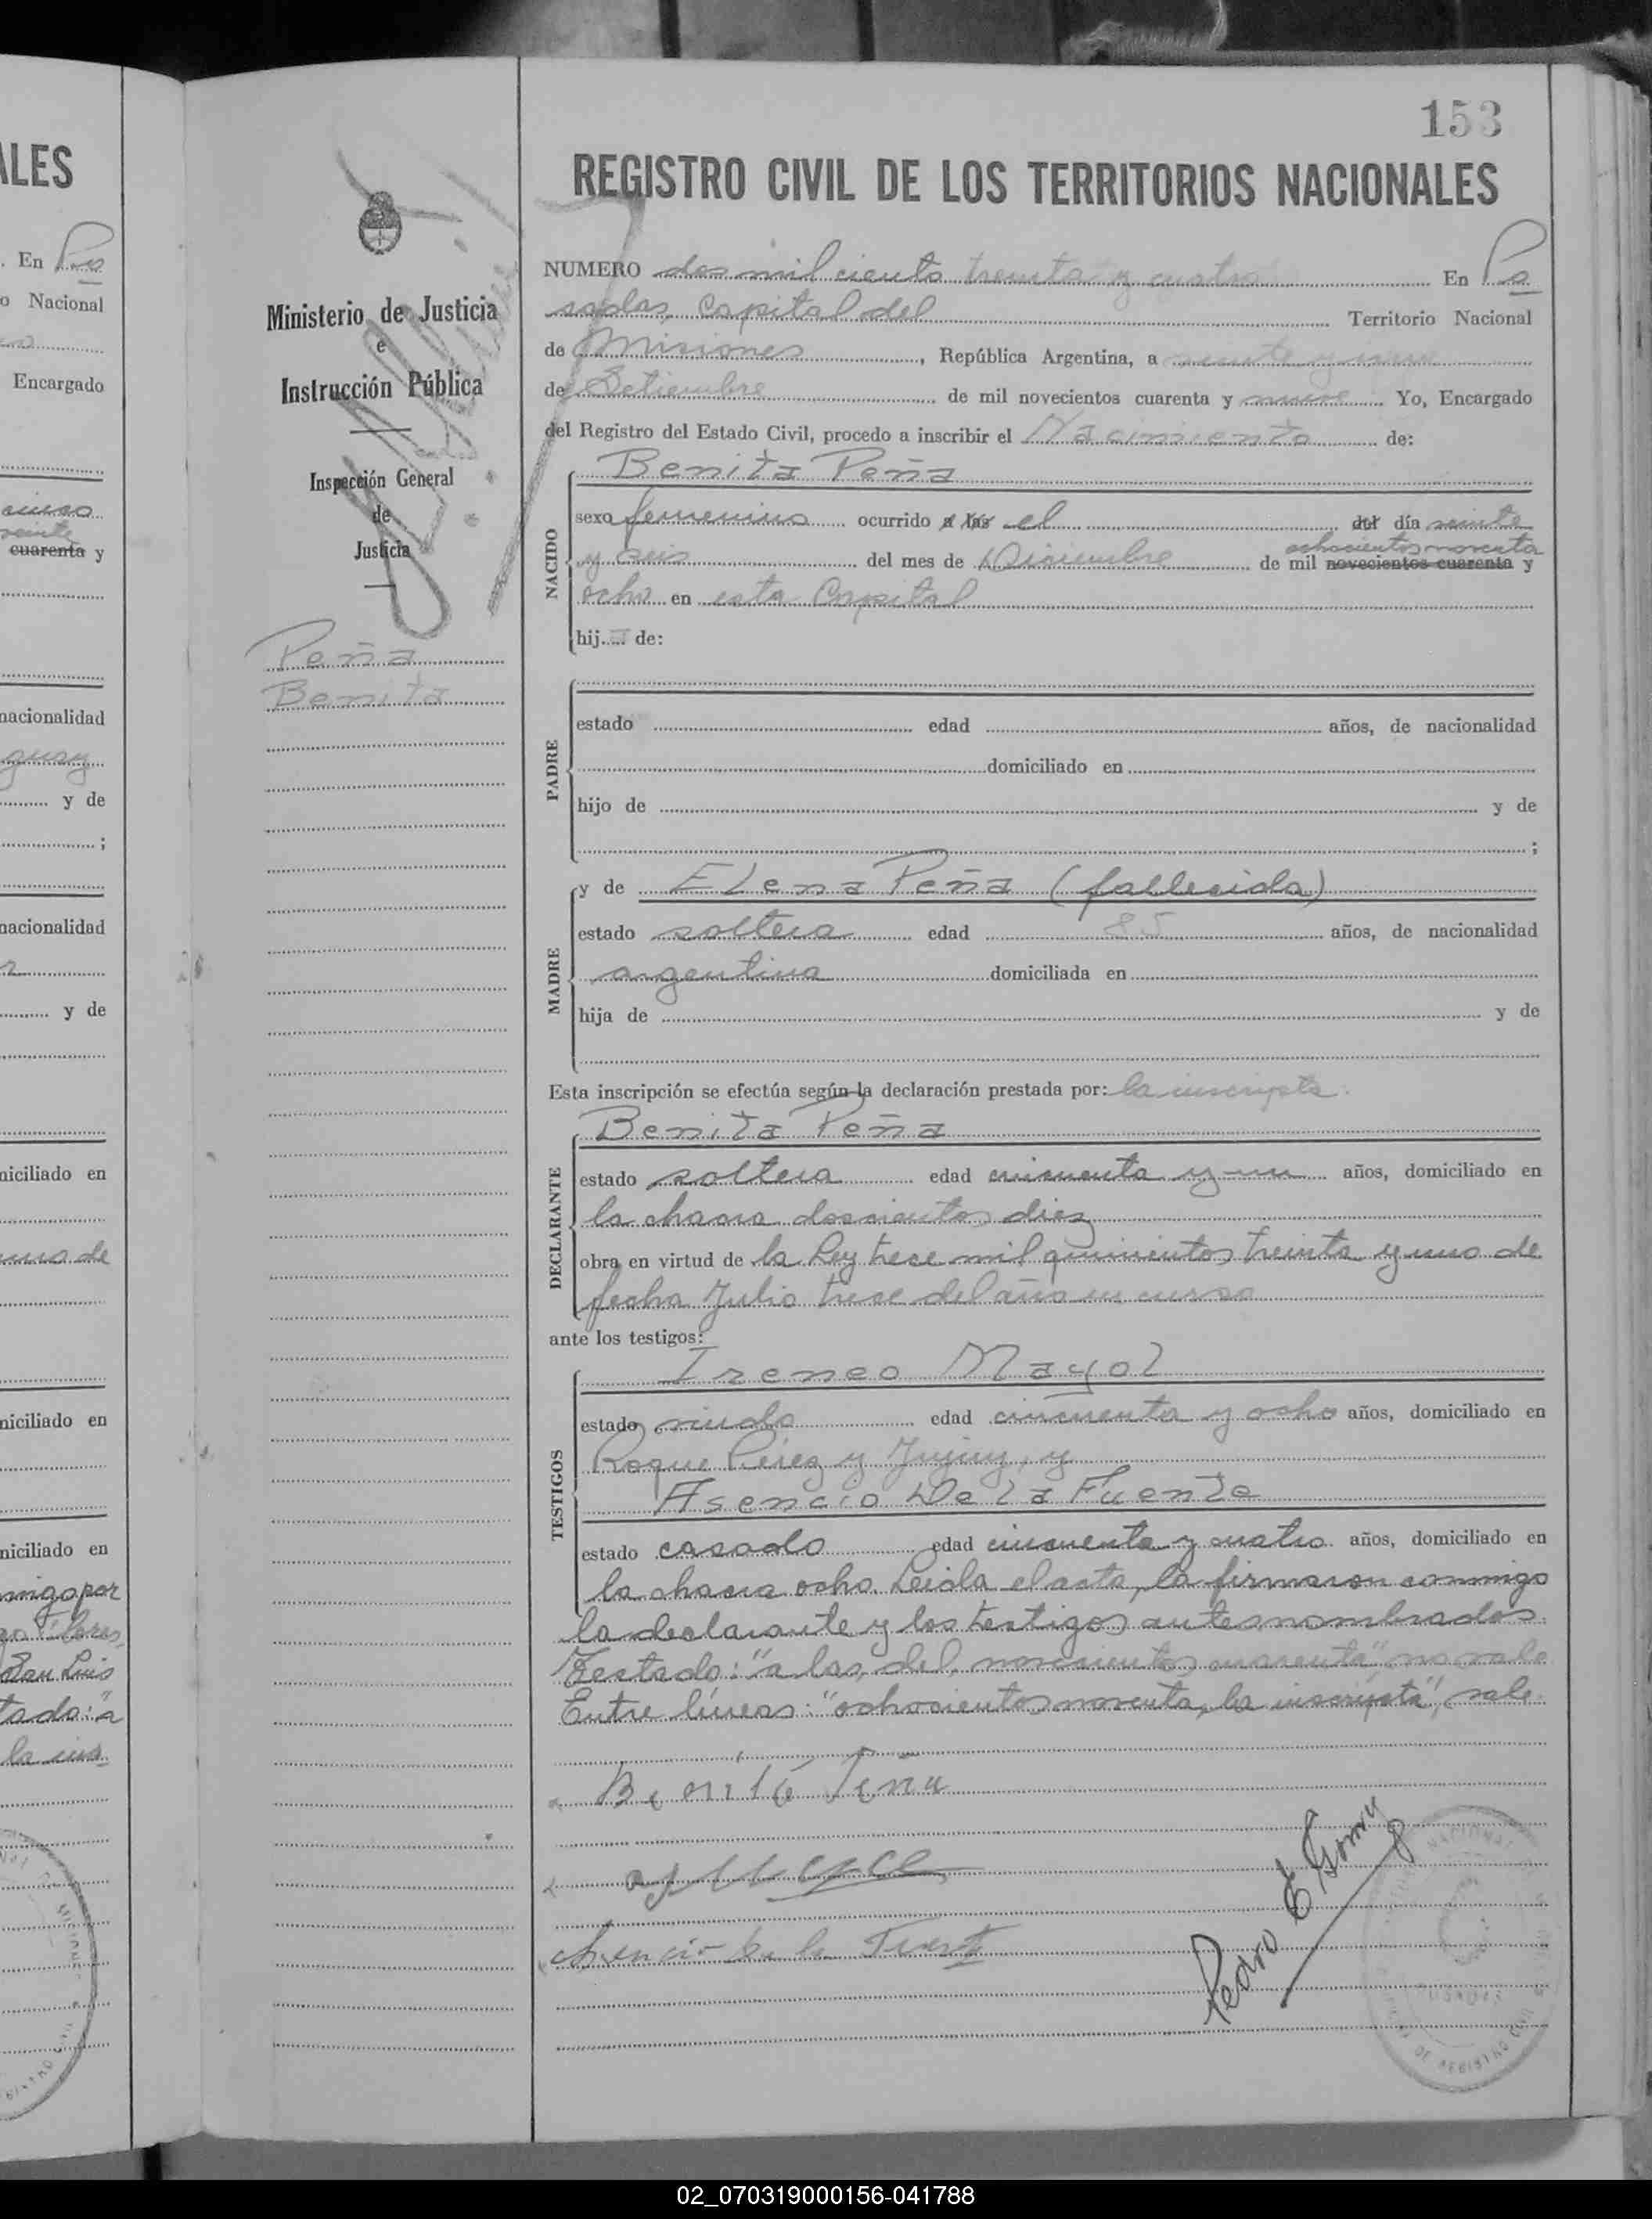 153
REGISTRO CIVIL DE LOS TERRITORIOS NACIONALES
NUMERO dos mil ciento treinta y cuatro En Po
sadas, Capital del Territorio Nacional
de Misiones, República Argentina, a veinte y
de Setiembre de mil novecientos cuarenta y nueve Yo, Encargado
del Registro del Estado Civil, procedo a inscribir el Nacimiento de:
Benita Peña
NACIDO
sexo femenino ocurrido a las el del día veinte
ochocientos noventa
y seis del mes de Diciembre de mil novecientos cuarenta y
ocho en esta Capital
hij a de:
PADRE
estado edad años, de nacionalidad
domiciliado en
hijo de y de
;
MADRE
y de Elena Peña (fallecida)
estado soltera edad 85 años, de nacionalidad
argentina domiciliada en
hija de y de
Esta inscripción se efectúa según la declaración prestada por: la inscripta.
DECLARANTE
Benita Peña
estado soltera edad cincuenta y un años, domiciliado en
la chacra doscientos diez
obra en virtud de la Ley trece mil quinientos treinta y uno de
fecha Julio trece del año en curso
ante los testigos:
TESTIGOS
Ireneo Mayol
estado viudo edad cincuenta y ocho años, domiciliado en
Roque Pérez y Jujuy, y
Asencio De la Fuente
estado casado edad cincuenta y cuatro años, domiciliado en
la chacra ocho. Leida el acta, la firmaron conmigo
la declarante y los testigos antes nombrados.
Testado: "a las, del, novecientos cuarenta", no vale
Entre líneas: "ochocientos noventa, la inscripta", vale.
Benita Peña
Asencio De la Fuente
Pedro E Gomez
Ministerio de Justicia
e
Instrucción Pública
Inspección General
de
Justicia
Peña
Benita
ALES
. En Po
o Nacional
Encargado
cinco
veinte
cuarenta y
nacionalidad
guay
y de
;
nacionalidad
y de
niciliado en
uno de
niciliado en
niciliado en
migo por
Flores,
San Luis
tado: "a
la ins
POSADAS
DE REGISTRO CIVIL
02_070319000156-041788